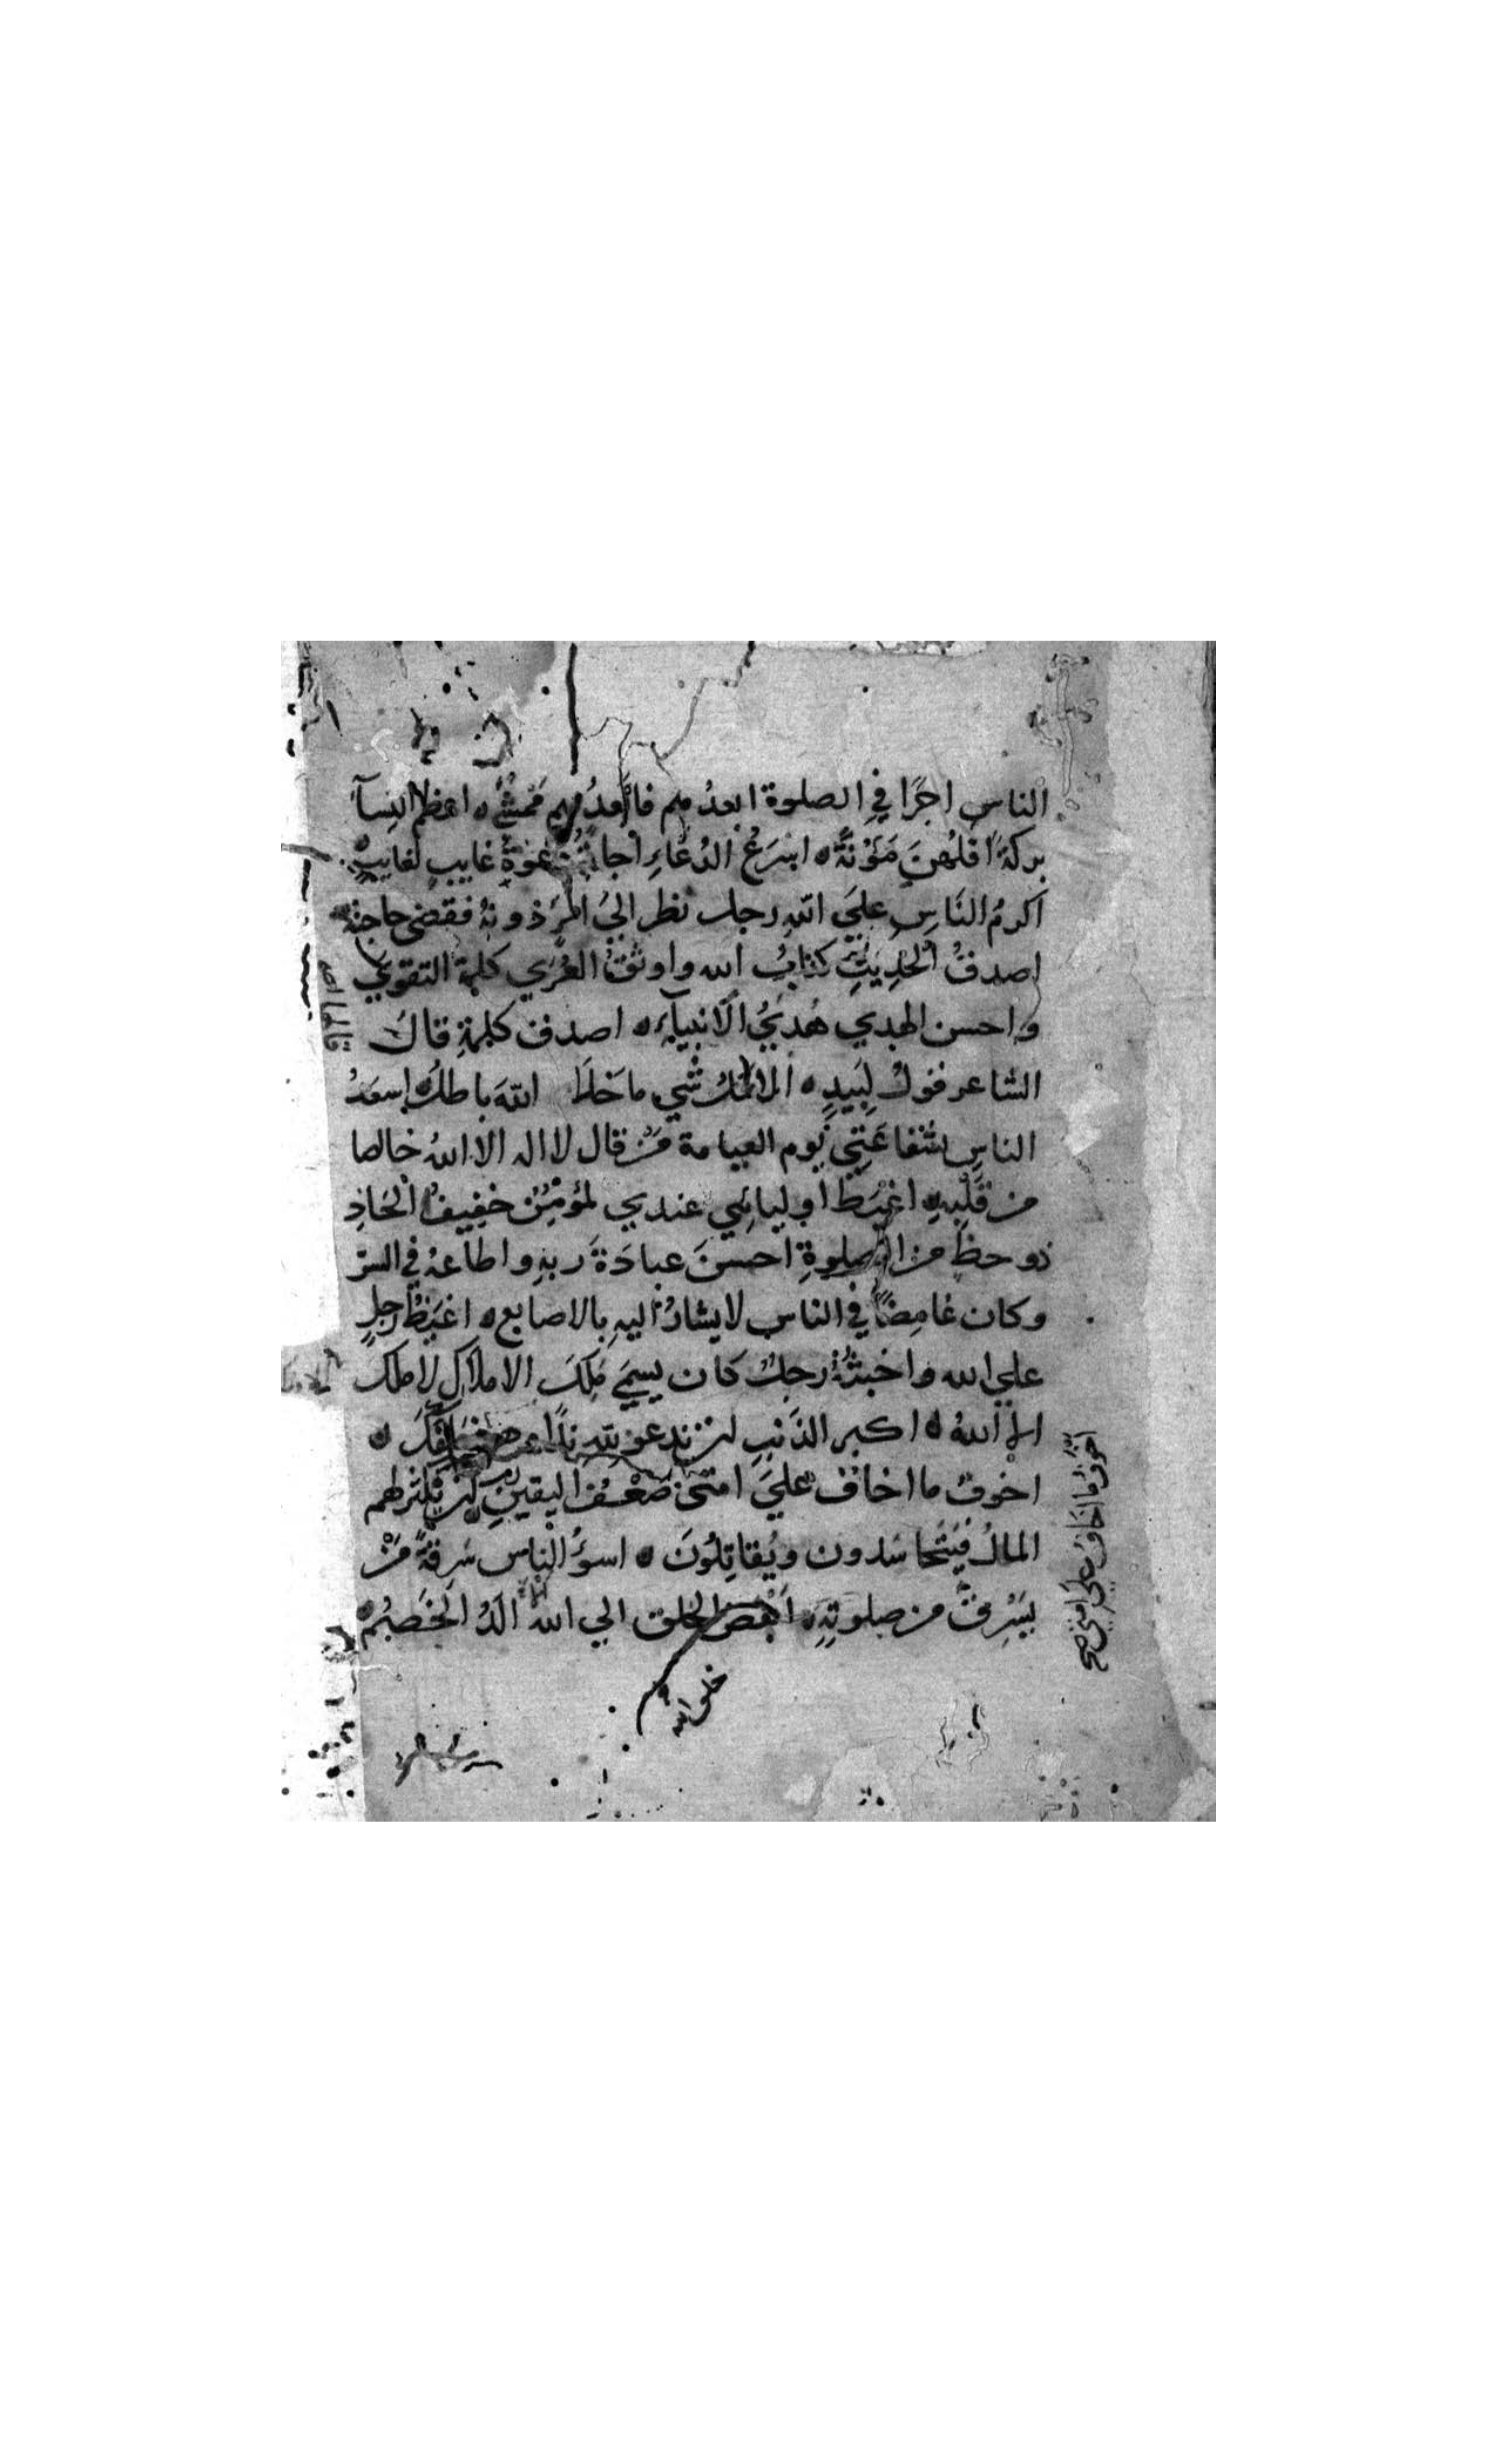 الناس اجرًا في الصلوة ابعدهم فابعدهم ممشي ه اعظم النسآء
بركةً اقلهن مَؤنةً ه اسرعُ الدعاءِ اجابةً دعوةُ غايبٍ لغايبٍ ه
اكرمُ الناسِ علي اللهِ رجل نظر الي امرٍ ذونهُ فقضي حاجته
اصدقُ الحديثِ كتابُ الله واوثقُ العُرَي كلمة التقوي
واحسن الهدي هُديُ الانبيآءِ ه اصدق كلمةٍ قالَ
الشاعر قولُ لبيدٍ ه الا كلُ شي ما خلا اللهَ باطلُ ه اسعدُ
الناسِ بشفاعتي يوم القيامة مَن قال لا اله الا اللهُ خالصا
من قلبهِ ه اغبطُ اوليايي عندي لمؤمِنٌ خفيفُ الحاذِ
ذو حظٍ من الصلوةِ احسنَ عبادةَ ربهِ واطاعهُ في السرّ
وكان غامِضًا في الناس لا يشارُ اليهِ بالاصابع ه اغيظُ رجلٍ
علي الله واخبثهُ رجلُ كان يسمي مَلِكَ الاملاكِ لا ملك
الا اللهُ ه اكبر الذنبِ ان تدعو للهِ ندًا وهو خلقكَ ه
اخوفُ ما اخافُ عليَ امتى ضعفُ اليقينِ ان يكثر لهم
المالُ فيَتَحاسَدون ويُقاتِلُونَ ه اسوءُ الناس سَرِقةً مَنْ
يَسْرِقُ من صلوتِهِ ه ابغض الخلق الي الله الَدُّ الخَصِمُ ه
خلق الله
اخوفُ ما اخاف علي امتي صح